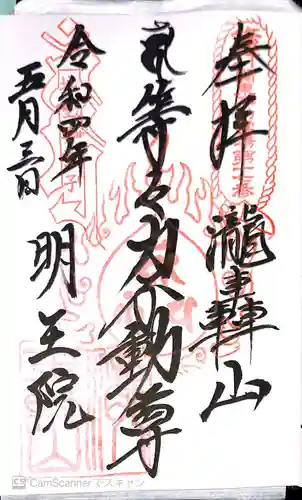 奉拝
瀧轟山
等々力不動尊
令和四年
五月三日
明王院
CS CamScanner でスキャン